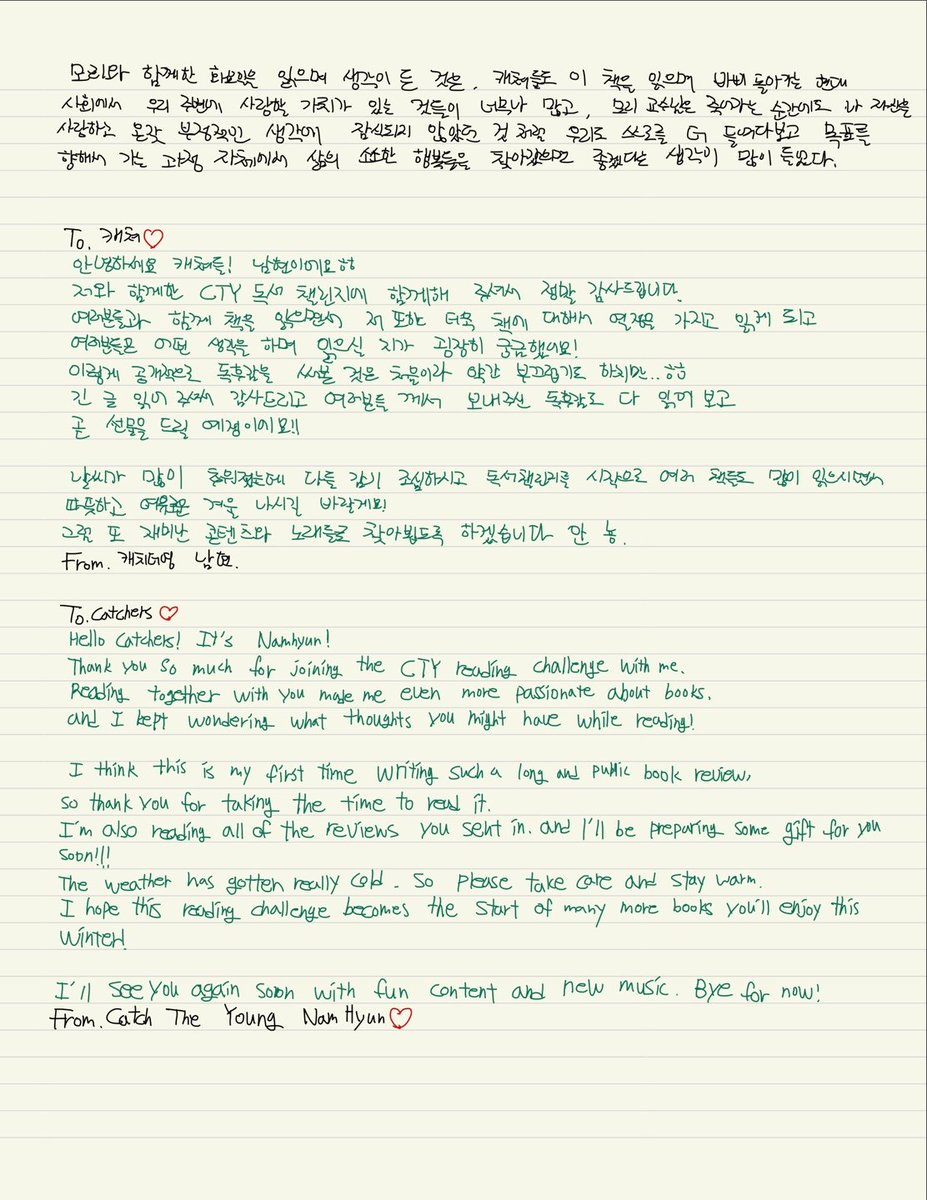 모리와 함께한 화요일을 읽으며 생각이 든 것은, 캐쳐들도 이 책을 읽으며 바삐 돌아가는 현대
사회에서 우리 주변에 사랑할 가치가 있는 것들이 너무나 많고, 모리 교수님은 죽어가는 순간에도 나 자신을
사랑하고 온갖 부정적인 생각에 잠식되지 않았던 것 처럼 우리도 스스로를 더 들여다보고 목표를
향해서 가는 과정 자체에서 삶의 소소한 행복들을 찾아갔으면 좋겠다는 생각이 많이 들었다.
To. 캐쳐♡
안녕하세요 캐쳐들! 남현이에요ㅎㅎ
저와 함께한 CTY 독서 챌린지에 함께해 주셔서 정말 감사드립니다.
여러분들과 함께 책을 읽으면서 저 또한 더욱 책에 대해서 열정을 가지고 읽게 되고
여러분들은 어떤 생각을 하며 읽으실 지가 굉장히 궁금했어요!
이렇게 공개적으로 독후감을 써볼 것은 처음이라 약간 부끄럽기도 하지만..ㅎㅎ
긴 글 읽어 주셔서 감사드리고 여러분들 께서 보내주신 독후감도 다 읽어 보고
곧 선물을 드릴 예정이에요!!
날씨가 많이 추워졌는데 다들 감기 조심하시고 독서챌린지를 시작으로 여러 책들도 많이 읽으시면서
따뜻하고 여유로운 겨울 나시길 바랄게요!
그럼 또 재미난 콘텐츠와 노래들로 찾아뵙도록 하겠습니다 안 뇽.
From. 캐치더영 남현.
To. Catchers ♡
Hello Catchers! It's Namhyun!
Thank you so much for joining the CTY reading challenge with me.
Reading together with you made me even more passionate about books.
and I kept wondering what thoughts you might have while reading!
I think this is my first time writing such a long and public book review,
so thank you for taking the time to read it.
I'm also reading all of the reviews you sent in. and I'll be preparing some gift for you
soon!!!
The weather has gotten really cold. So please take care and stay warm.
I hope this reading challenge becomes the start of many more books you'll enjoy this
winter!
I'll see you again soon with fun content and new music. Bye for now!
From. Catch The Young NamHyun♡